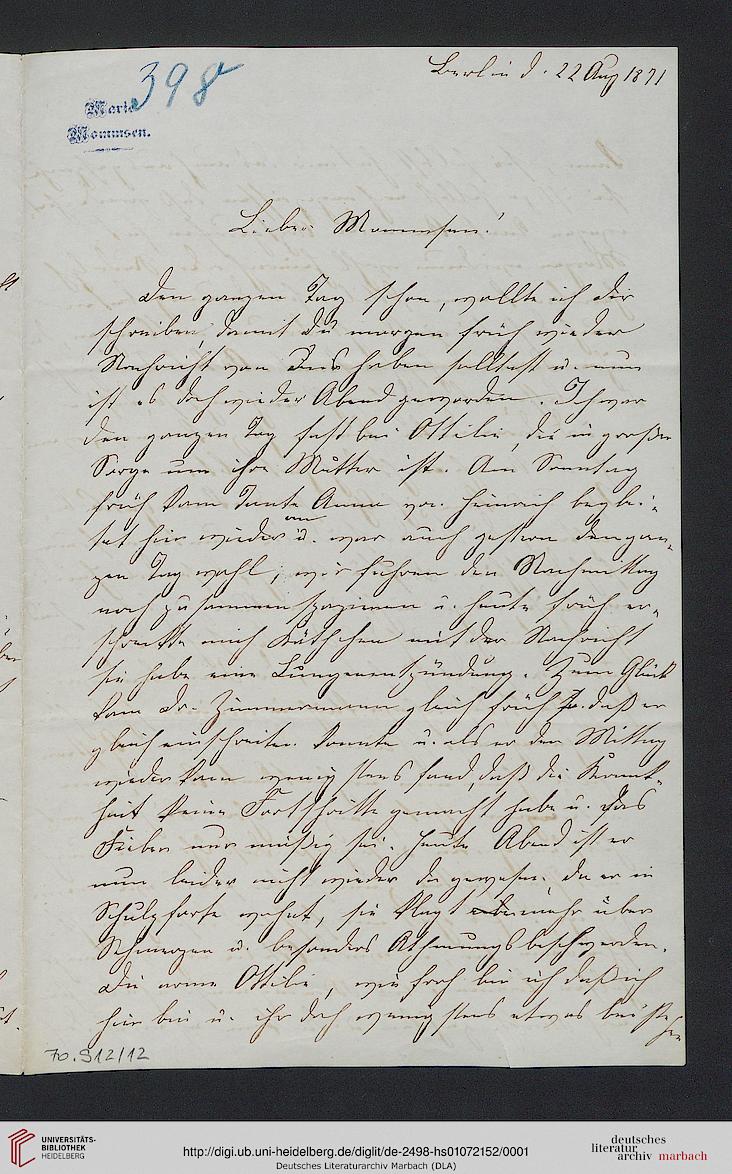 398
Marie
Mommsen.
Berlin d. 22 Aug 1871
Lieber Mommsen!
Den ganzen Tag schon, wollte ich Dir
schreiben, damit Du morgen früh wieder
Nachricht von uns haben solltest u. nun
ist es doch wieder Abend geworden. Ich war
den ganzen Tag fast bei Ottilie, die in großer
Sorge um ihre Mutter ist. Am Sonntag
früh kam Tante Anna von Heinrich beglei-
tet hier wieder an u. war auch gestern den gan-
zen Tag wohl, wir fuhren den Nachmittag
noch zusammen spazieren u. heute früh er-
schreckte mich Käthchen mit der Nachricht
sie habe eine Lungenentzündung. Zum Glück
kam Dr. Zimmermann gleich früh so daß er
gleich einschreiten konnte u. als er den Mittag
wieder kam wenigstens fand, daß die Krank-
heit keine Fortschritte gemacht habe u. das
Fieber nur mäßig sei. Heute Abend ist er
nun leider nicht wieder da gewesen, da er in
wohnt, sie klagt mehr über
Schmerzen u. besonders Athmungsbeschwerden.
Die arme Ottilie, wie froh bin ich daß ich
hier bin u. ihr doch wenigstens etwas beistehen
70.912/12
UNIVERSITÄTS-
BIBLIOTHEK
HEIDELBERG
http://digi.ub.uni-heidelberg.de/diglit/de-2498-hs01072152/0001
Deutsches Literaturarchiv Marbach (DLA)
deutsches
literatur
archiv marbach